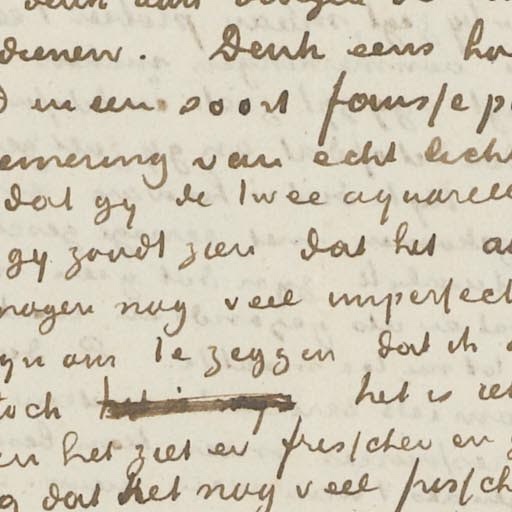 dienen. Denk eens ho
in een soort fausse p
emering van echt licht
dat gy de twee aquarell
gy zoudt zien dat het a
mogen nog veel imperfect
yn om te zeggen dat ik
toch het is
en het ziet er frisscher en
dat het nog veel frissch